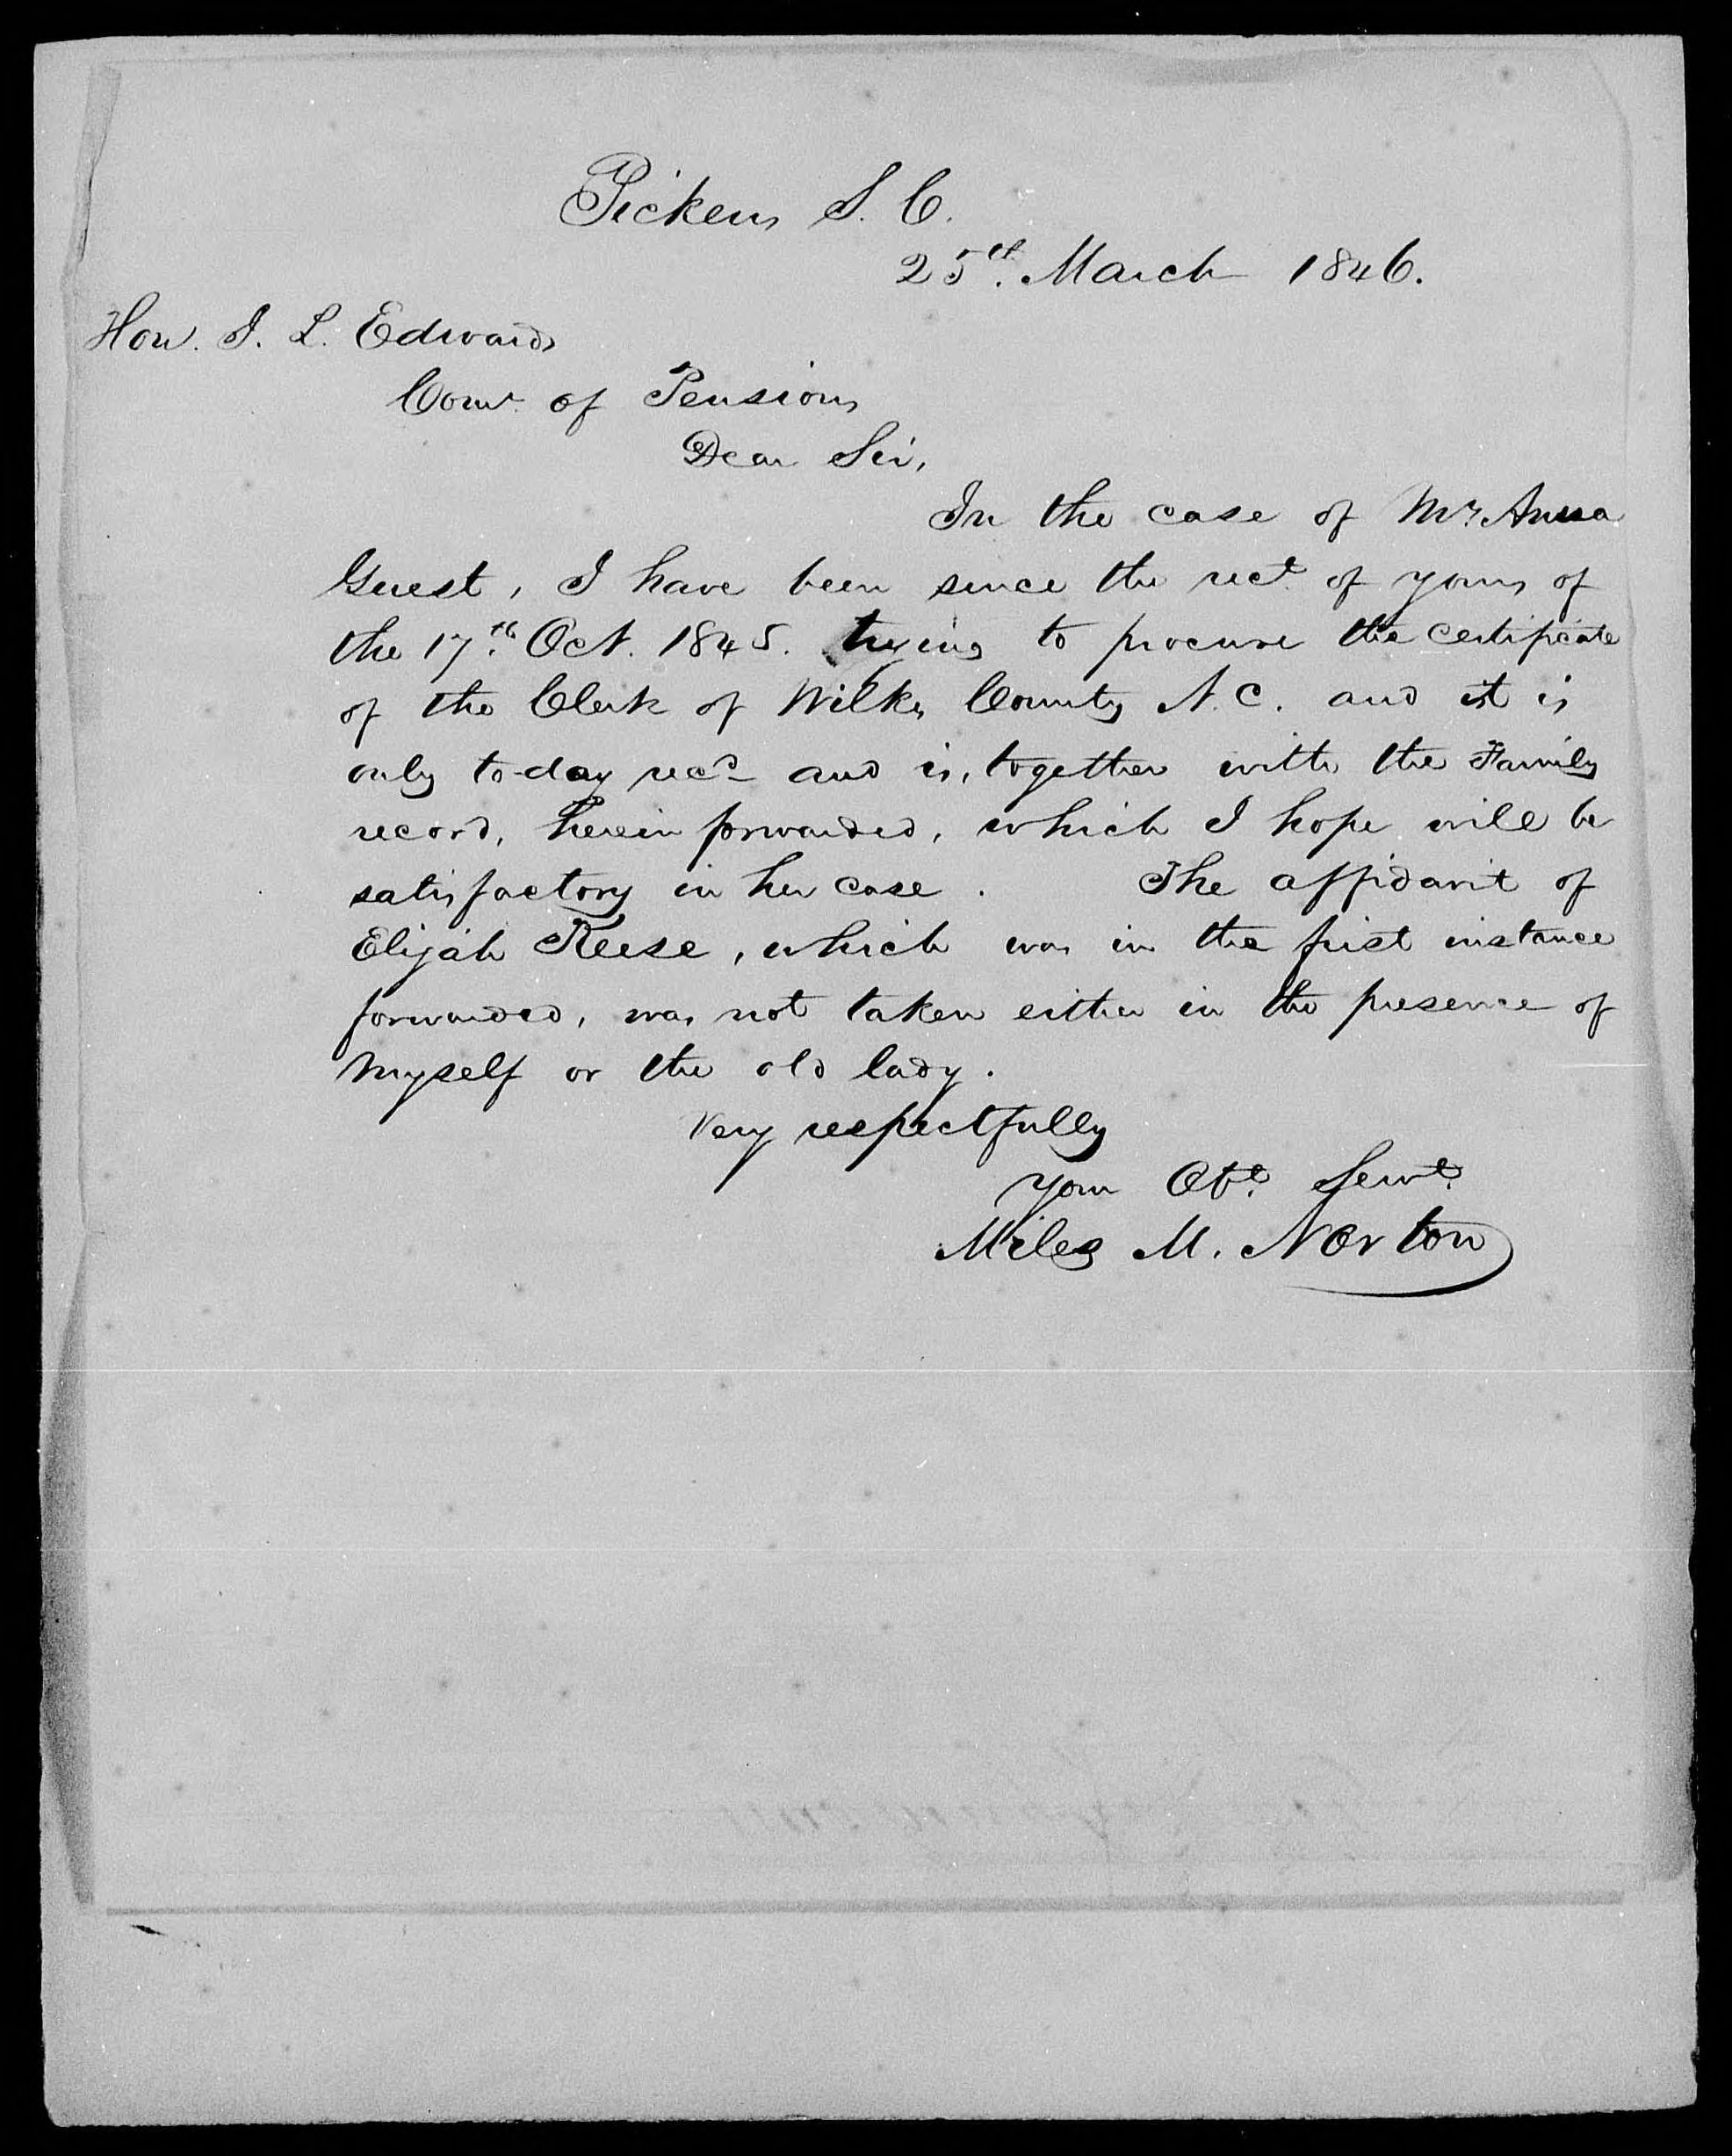 Pickens S. C.
25th. March 1846.
Hon. J. L. Edwards
Comr. of Pensions
Dear Sir,
In the case of Mrs Anna
Guest, I have been since the rect. of yours of
the 17th. Oct. 1845. trying to procure the certificate
of the Clerk of Wilks County N. C. and it is
only to-day recd and is, together with the Family
record, herein forwarded, which I hope will be
satisfactory in her case. The affidavit of
Elijah Reese, which was in the first instance
forwarded, was not taken either in the presence of
myself or the old lady.
Very respectfully
Your Obt. Servt.
Miles M. Norton